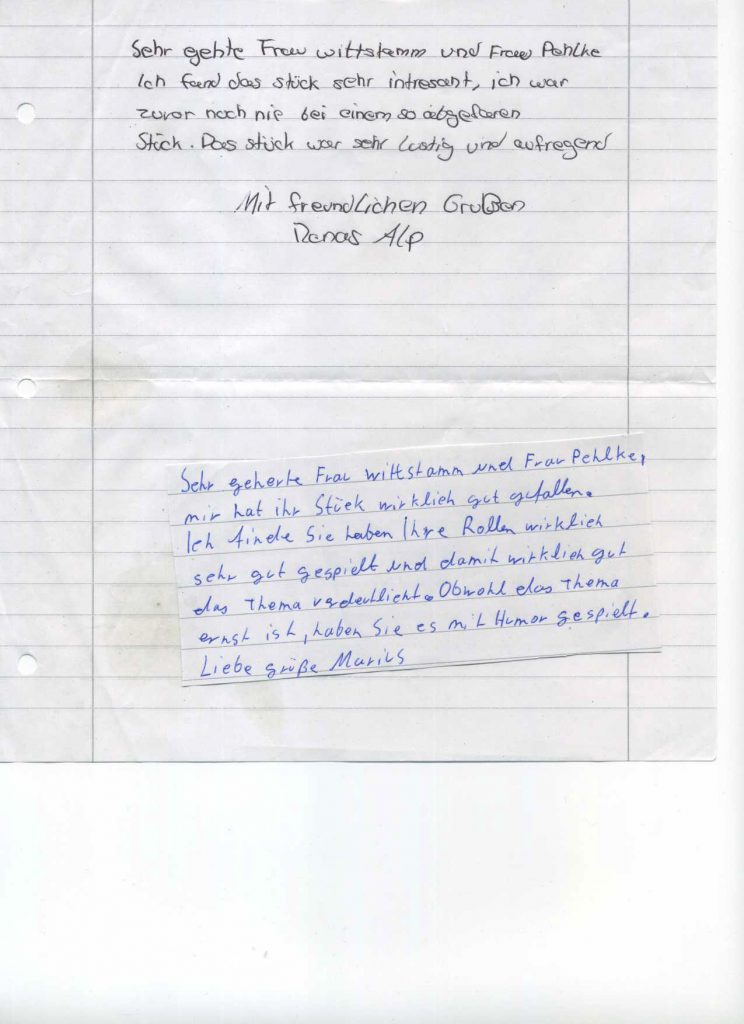 Sehr gehte Frau wittstamm und Frau Pehlke
Ich fand das stück sehr intresant, ich war
zuvor noch nie bei einem so abgefaren
Stück. Das stück war sehr lustig und aufregend
Mit freundlichen Grußen
Alp
Sehr geherte Frau wittstamm und Frau Pehlke,
mir hat ihr Stück wirklich gut gefallen.
Ich finde Sie haben Ihre Rollen wirklich
sehr gut gespielt und damit wirklich gut
das Thema verdeutlicht. Obwohl das Thema
ernst ist, haben Sie es mit Humor gespielt.
Liebe grüße Marius